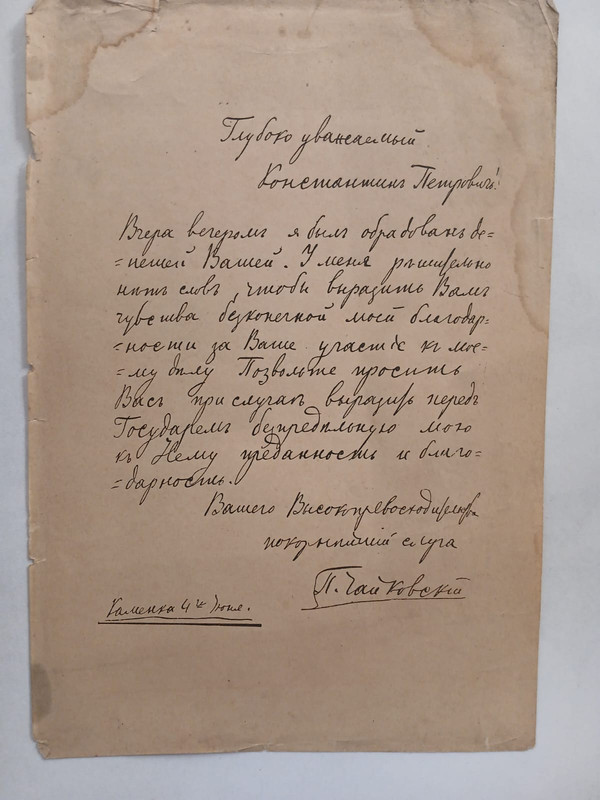 Глубоко уважаемый
Константинъ Петровичъ!
Вчера вечеромъ я былъ обрадованъ де=
=пешей Вашей. У меня рѣшительно
нѣтъ словъ, чтобы выразить Вамъ
чувства безконечной моей благодар=
=ности за Ваше участіе къ мое=
=му дѣлу Позвольте просить
Васъ при случаѣ выразить передъ
Государемъ безпредѣльную мою
къ Нему преданность и благо=
=дарность.
Вашего Высокопревосходительства
покорнѣйшій слуга
П. Чайковскій
Каменка 4го Іюня.